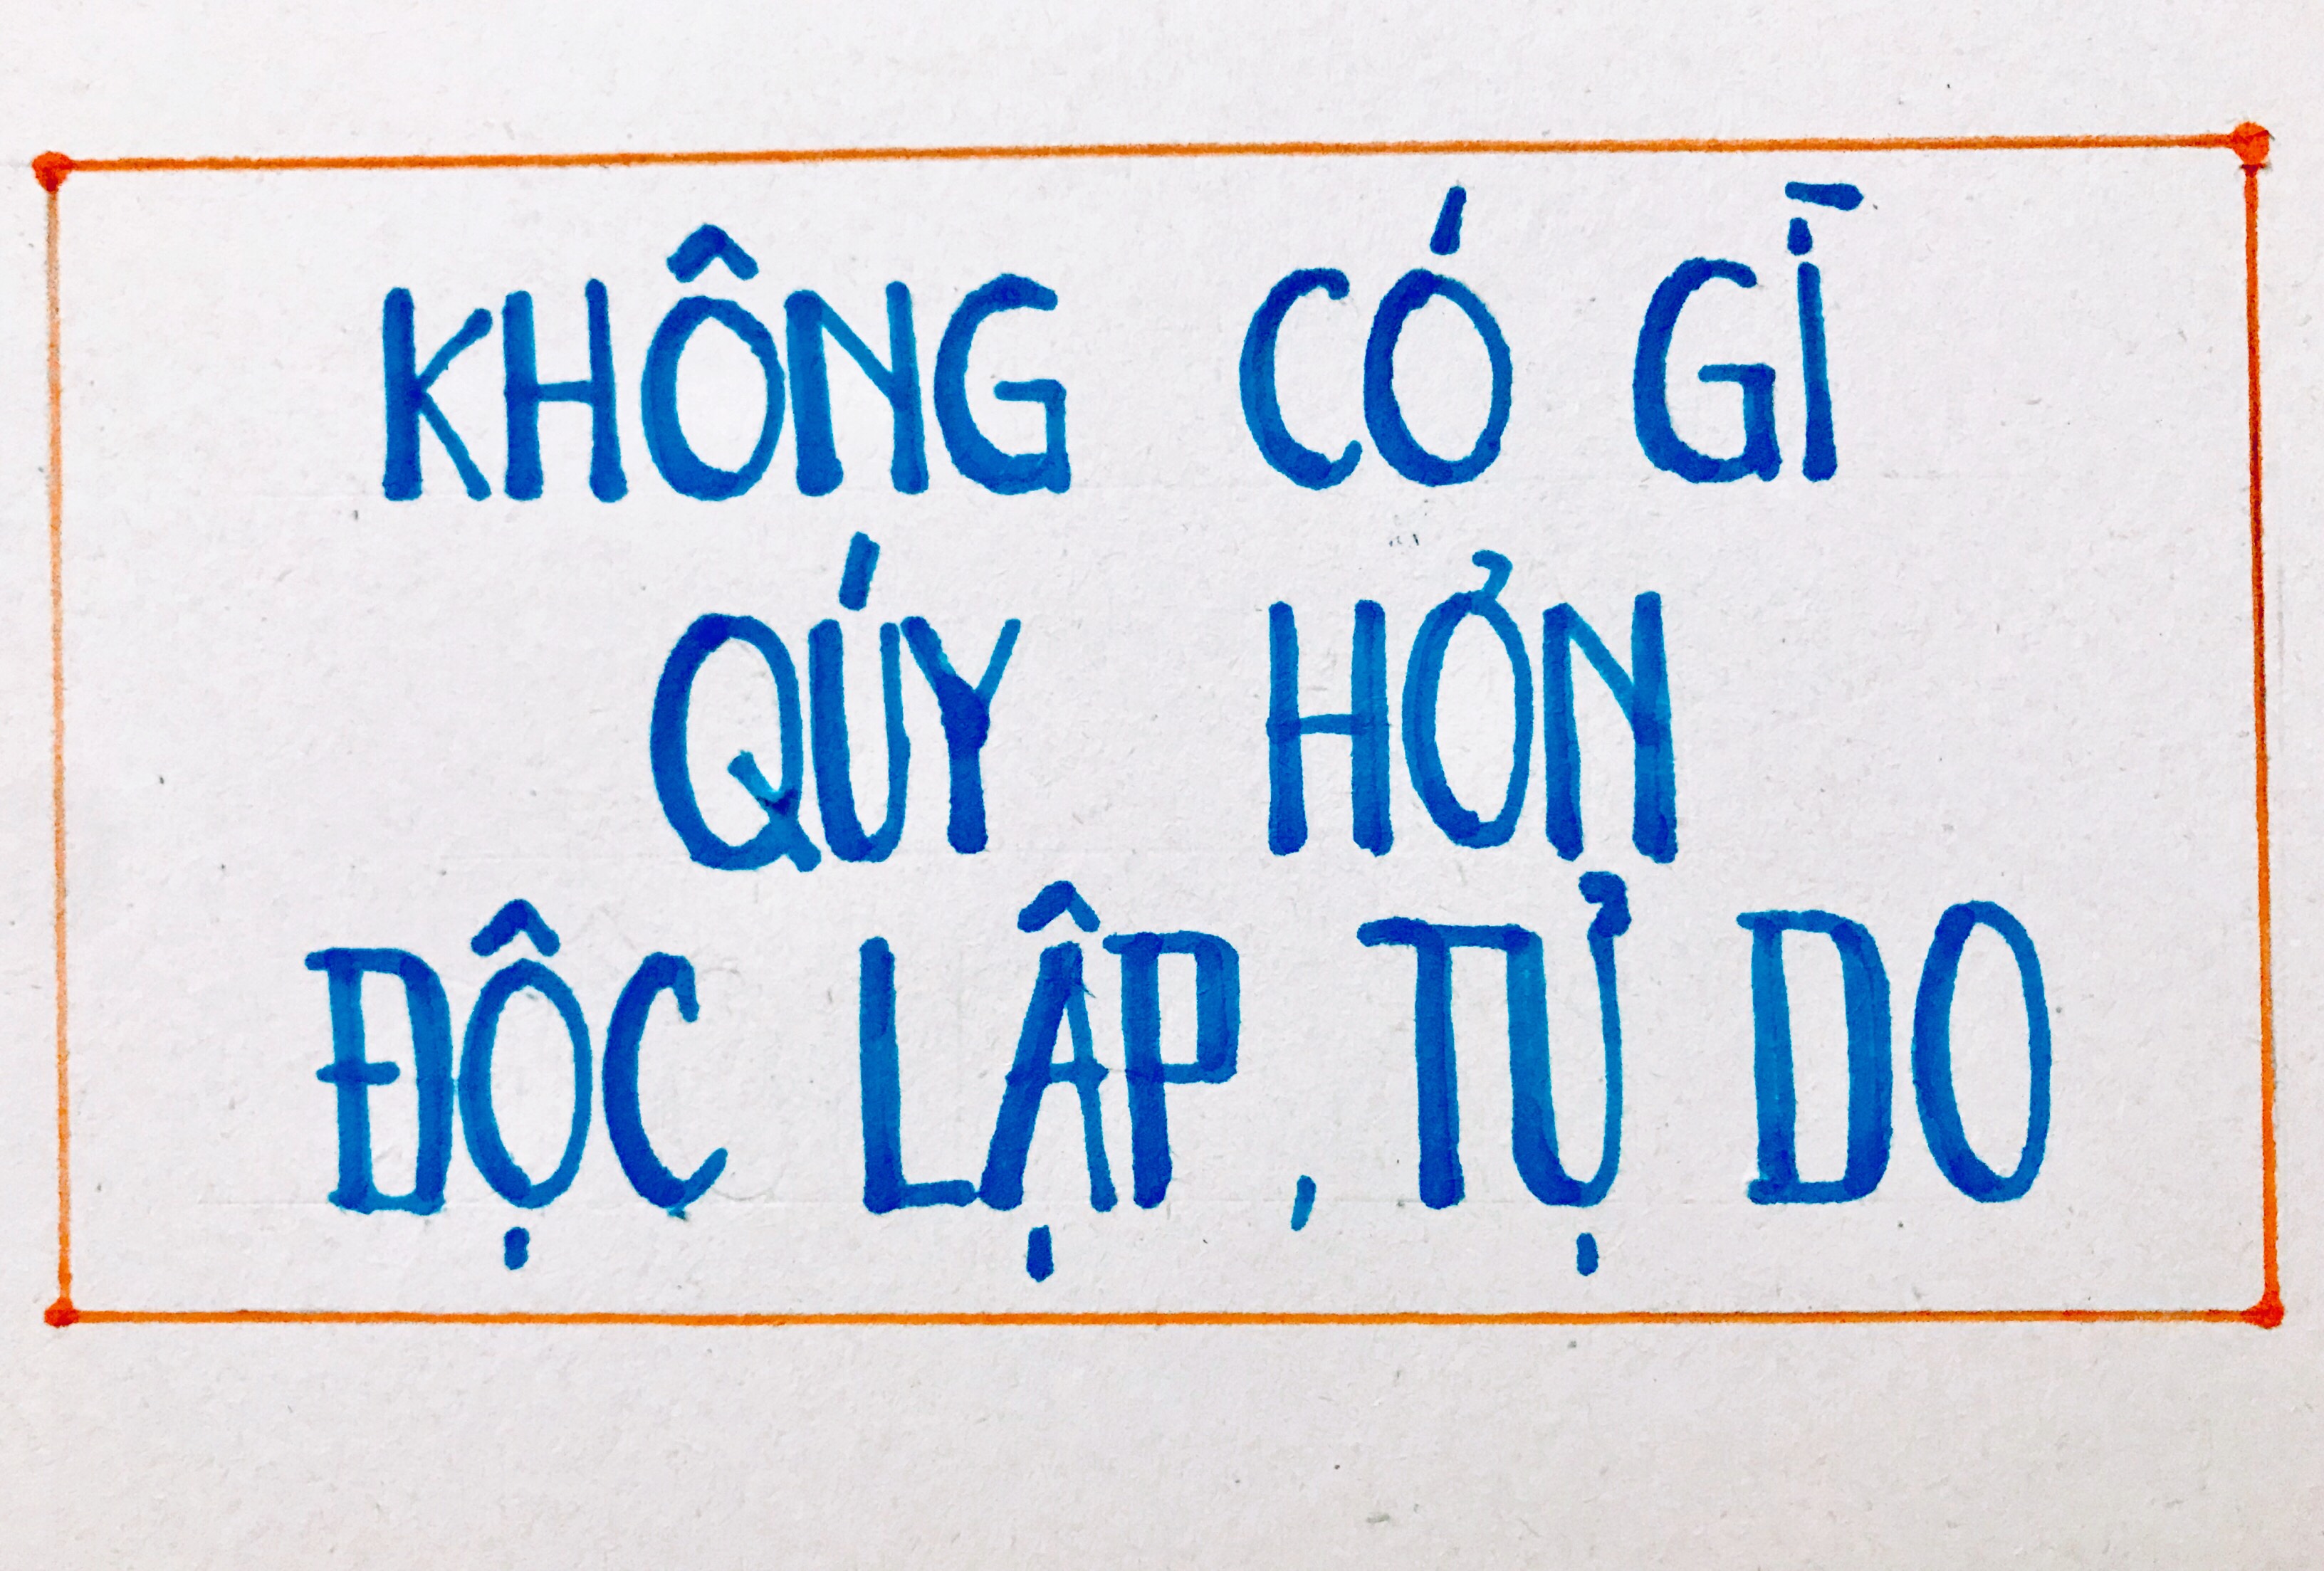 KHÔNG CÓ GÌ
QÚY HƠN
ĐỘC LẬP, TỰ DO